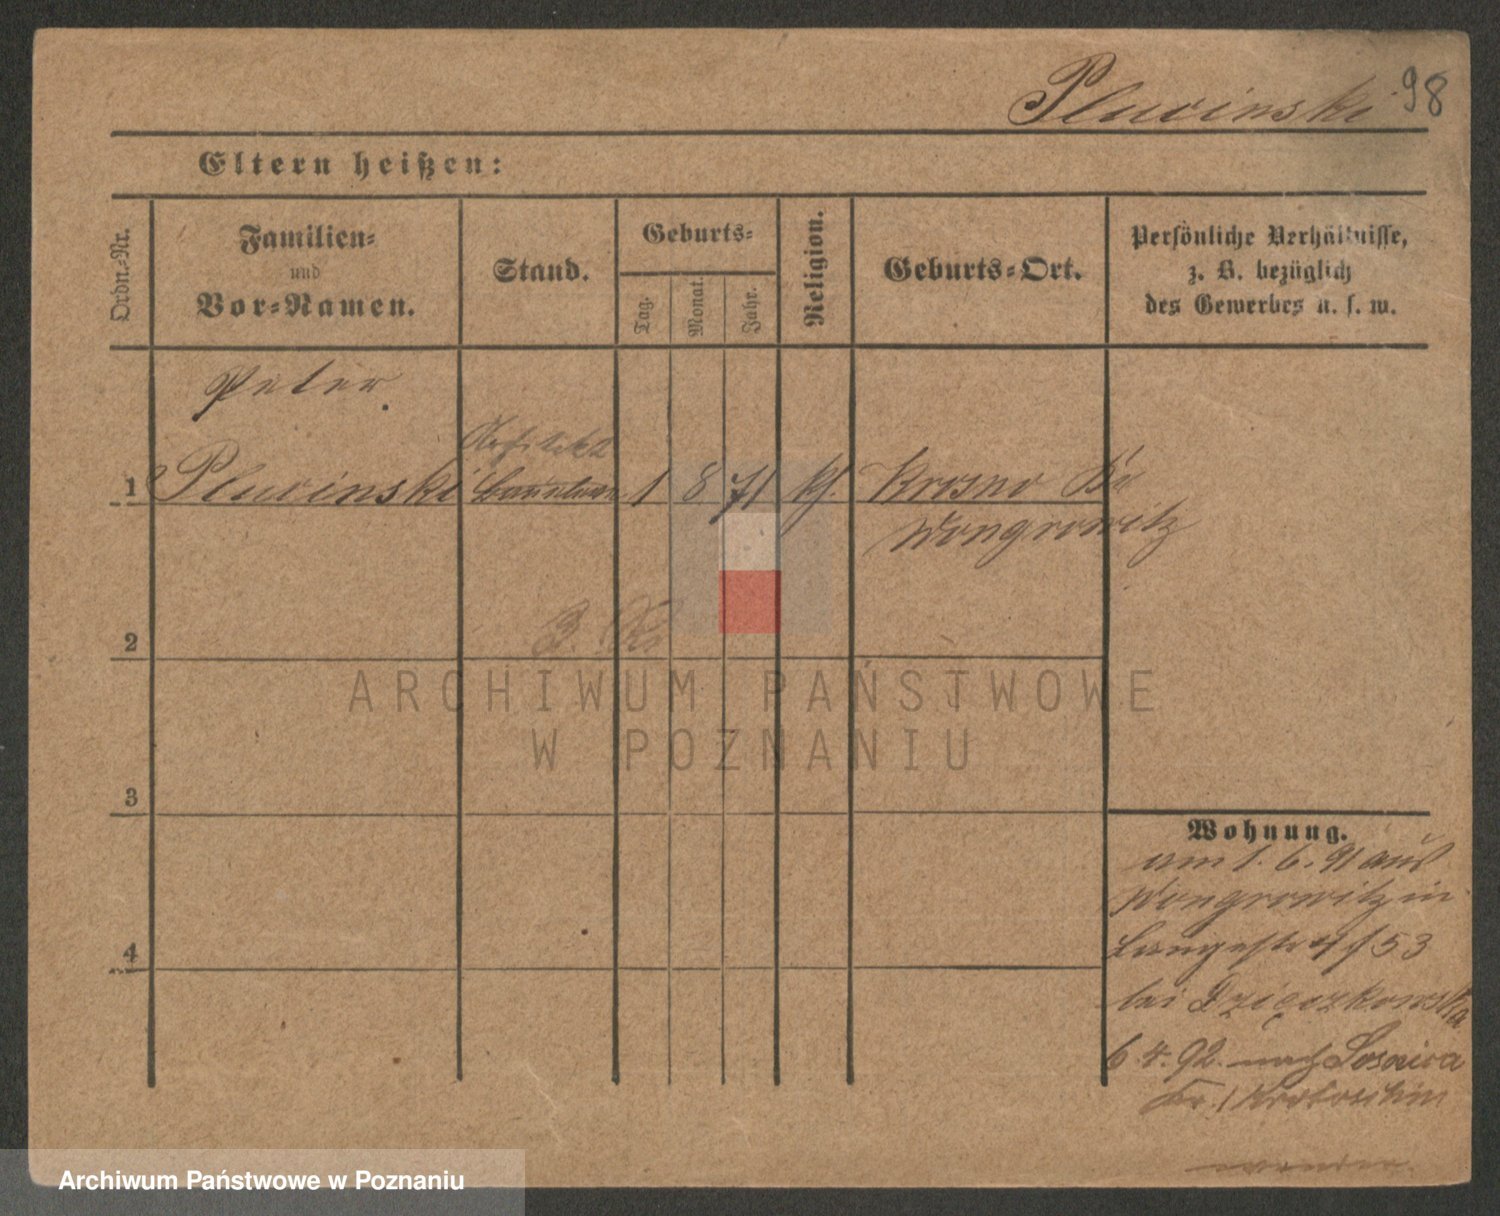 Pluvinski 98
Eltern heißen:
Ordn.-Nr.
Familien-
und
Vor-Namen.
Stand.
Geburts-
Tag.
Monat.
Jahr.
Religion.
Geburts-Ort.
Persönliche Verhältnisse,
z. B. bezüglich
des Gewerbes u. s. w.
Peter
1 Pluvinski 1 8 71 kh. Krosno Kr
Wongrowitz
2
3
4
Wohnung.
am 1. 6. 91 aus
Wongrowitz in
Langestr 53
bei
6 4. 92. nach
Kr. Krotoschin
ARCHIWUM PAŃSTWOWE
W POZNANIU
Archiwum Państwowe w Poznaniu